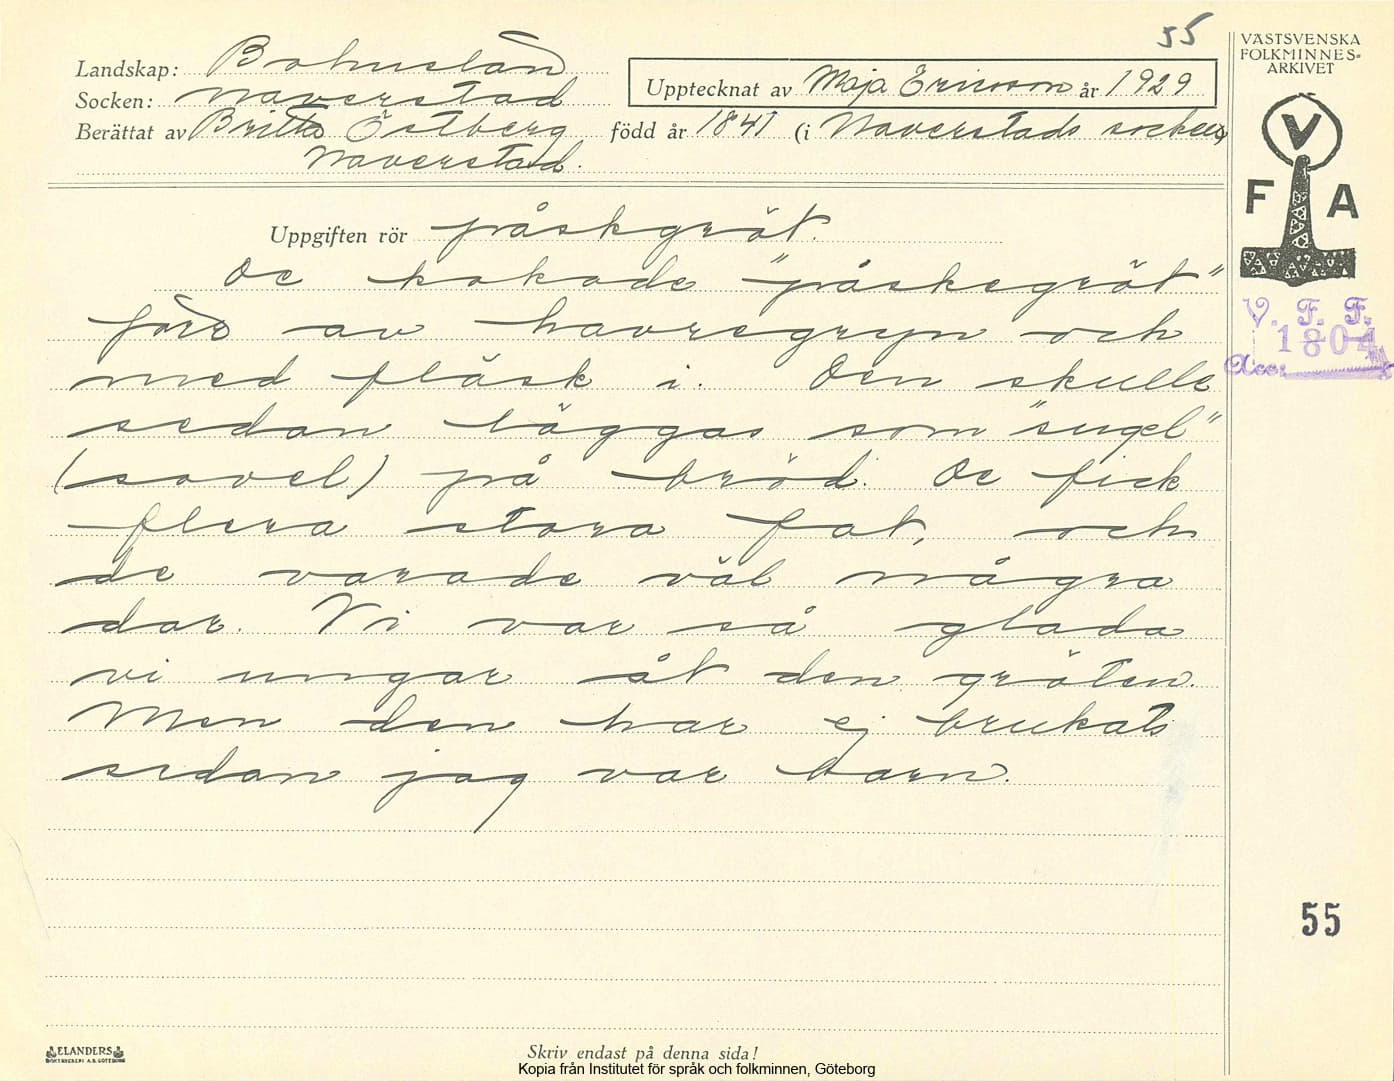 55
VÄSTSVENSKA
FOLKMINNES-
ARKIVET
Landskap: Bohuslän
Socken: Naverstad
Upptecknat av Maja Ericson år 1929
Berättat av Britta Östberg född år 1841 (i Naverstads socken)
Naverstad.
V
F A
Uppgiften rör påskgröt.
De kokade "påskegröt"
förr av havregryn och
med fläsk i. Den skulle
sedan läggas som "sugel"
(sovel) på bröd. De fick
flera stora fat, och
de varade väl några
dar. Vi var så glada
vi ungar åt den gröten.
Men den har ej brukats
sedan jag var barn.
V. F. F.
1804
Acc:
55
ELANDERS
BOKTRYCKERI A.B. GÖTEBORG
Skriv endast på denna sida!
Kopia från Institutet för språk och folkminnen, Göteborg